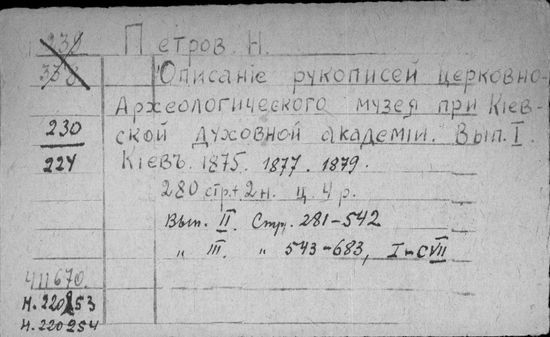 Петров. Н.
Описаніе рукописей церковно-
Археологического музея при Кіев-
230
ской духовной академіи. Вып. I.
224
Кіевъ. 1875. 1877. 1879.
280 стр. + 2 н. ц. 4 р.
Вып. II. Стр. 281-542
„ III. „ 543-683, I-CVII
411670.
Н. 220253
Н. 220254